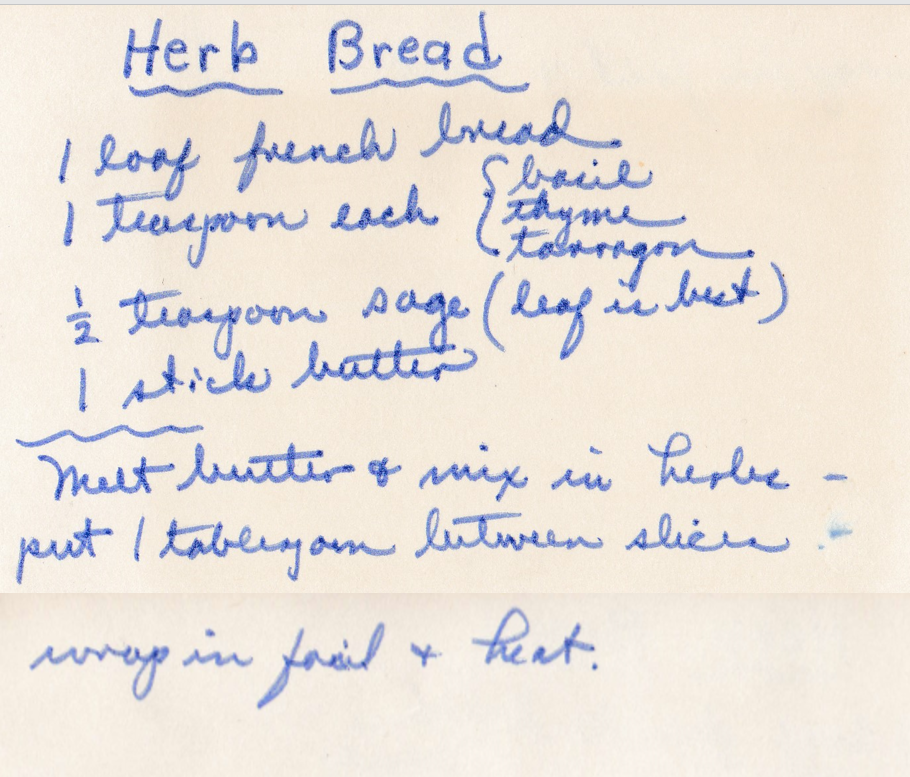 Herb Bread
1 loaf french bread
1 teaspoon each { basil
thyme
tarragon
½ teaspoon sage (leaf is best)
1 stick butter
Melt butter & mix in herbs -
put 1 tablespoon between slices
wrap in foil & heat.